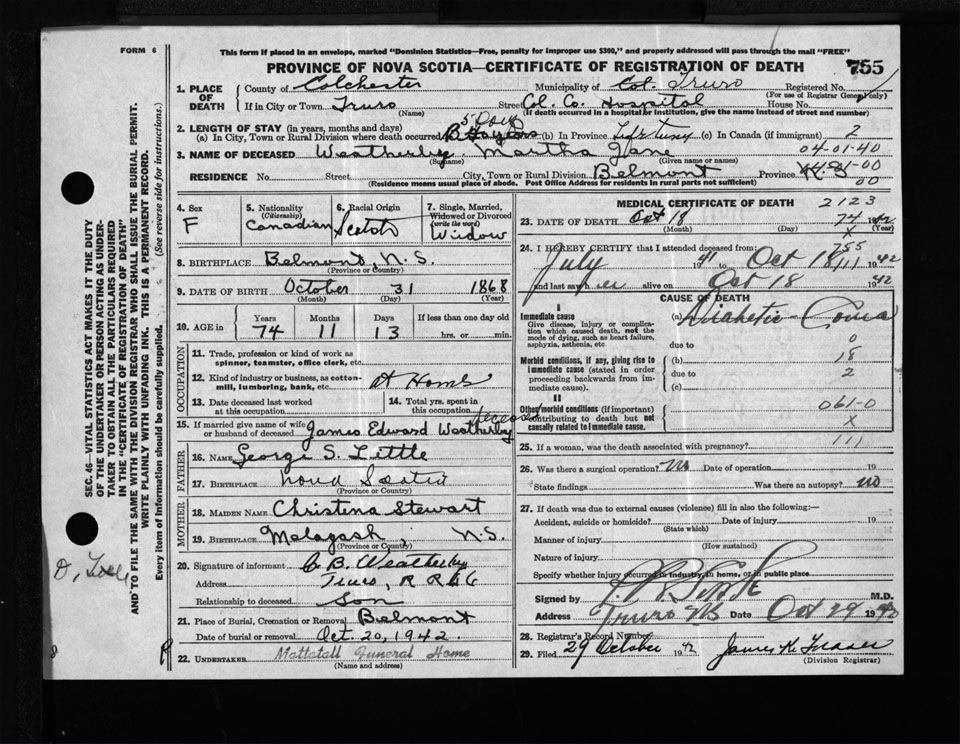 FORM 6
This form if placed in an envelope, marked "Dominion Statistics—Free, penalty for improper use $300," and properly addressed will pass through the mail "FREE"
PROVINCE OF NOVA SCOTIA—CERTIFICATE OF REGISTRATION OF DEATH
755
1. PLACE OF DEATH
County of Colchester Municipality of Col. Truro Registered No.
(For use of Registrar General only)
If in City or Town Truro Street Col. Co. Hospital House No.
(Name) (If death occurred in a hospital or institution, give its name instead of street and number)
2. LENGTH OF STAY (in years, months and days) 5 Days
(a) In City, Town or Rural Division where death occurred (b) In Province Life time (c) In Canada (if immigrant) 2
04-01-40
3. NAME OF DECEASED Weatherby Martha Jane
(Surname) (Given name or names)
RESIDENCE No. Street City, Town or Rural Division Belmont Province N.S.
(Residence means usual place of abode. Post Office Address for residents in rural parts not sufficient)
00
4. Sex
F
5. Nationality (Citizenship)
Canadian
6. Racial Origin
Scotch
7. Single, Married, Widowed or Divorced (write the word)
Widow
8. BIRTHPLACE Belmont, N.S.
(Province or Country)
9. DATE OF BIRTH October 31 1868
(Month) (Day) (Year)
10. AGE in
Years Months Days If less than one day
74 11 13 hrs. or min.
OCCUPATION
11. Trade, profession or kind of work as spinner, teamster, office clerk, etc.
12. Kind of industry or business, as cotton-mill, lumbering, bank, etc. At Home
13. Date deceased last worked at this occupation
14. Total yrs. spent in this occupation
15. If married give name of wife or husband of deceased James Edward Weatherby deceased
FATHER
16. NAME George S. Little
17. BIRTHPLACE Nova Scotia
(Province or Country)
MOTHER
18. MAIDEN NAME Christena Stewart
19. BIRTHPLACE Malagash, N.S.
(Province or Country)
20. Signature of informant C. B. Weatherby
Address Truro, R R # 6
Relationship to deceased Son
21. Place of Burial, Cremation or Removal Belmont
Date of burial or removal Oct. 20, 1942.
22. UNDERTAKER Mattatall Funeral Home
(Name and address)
MEDICAL CERTIFICATE OF DEATH 2123
23. DATE OF DEATH Oct 18 74 1942
(Month) (Day) (Year)
X
24. I HEREBY CERTIFY that I attended deceased from: 755
July 1941 to Oct 18 1942
and last saw her alive on Oct 18 1942
CAUSE OF DEATH
I
Immediate cause
Give disease, injury or complication which caused death, not the mode of dying, such as heart failure, asphyxia, asthenia, etc.
(a) Diabetic Coma
due to 0
Morbid conditions, if any, giving rise to immediate cause (stated in order proceeding backwards from immediate cause).
(b) 18
due to 2
(c)
II
Other morbid conditions (if important) contributing to death but not causally related to immediate cause.
061-0
X
25. If a woman, was the death associated with pregnancy? 111
26. Was there a surgical operation? No Date of operation 19
State findings Was there an autopsy? no
27. If death was due to external causes (violence) fill in also the following:—
Accident, suicide or homicide? Date of injury 19
(State which)
Manner of injury
(How sustained)
Nature of injury
Specify whether injury occurred in industry, in home, or in public place
Signed by M.D.
Address Truro NS Date Oct 29 19
28. Registrar's Record Number
29. Filed 29 October 1942 James K Fraser
(Division Registrar)
SEC. 46—VITAL STATISTICS ACT MAKES IT THE DUTY
OF THE UNDERTAKER OR PERSON ACTING AS UNDER-
TAKER TO OBTAIN ALL THE PARTICULARS REQUIRED
IN THE "CERTIFICATE OF REGISTRATION OF DEATH"
AND TO FILE THE SAME WITH THE DIVISION REGISTRAR WHO SHALL ISSUE THE BURIAL PERMIT.
WRITE PLAINLY WITH UNFADING INK. THIS IS A PERMANENT RECORD.
Every item of information should be carefully supplied. (See reverse side for instructions.)